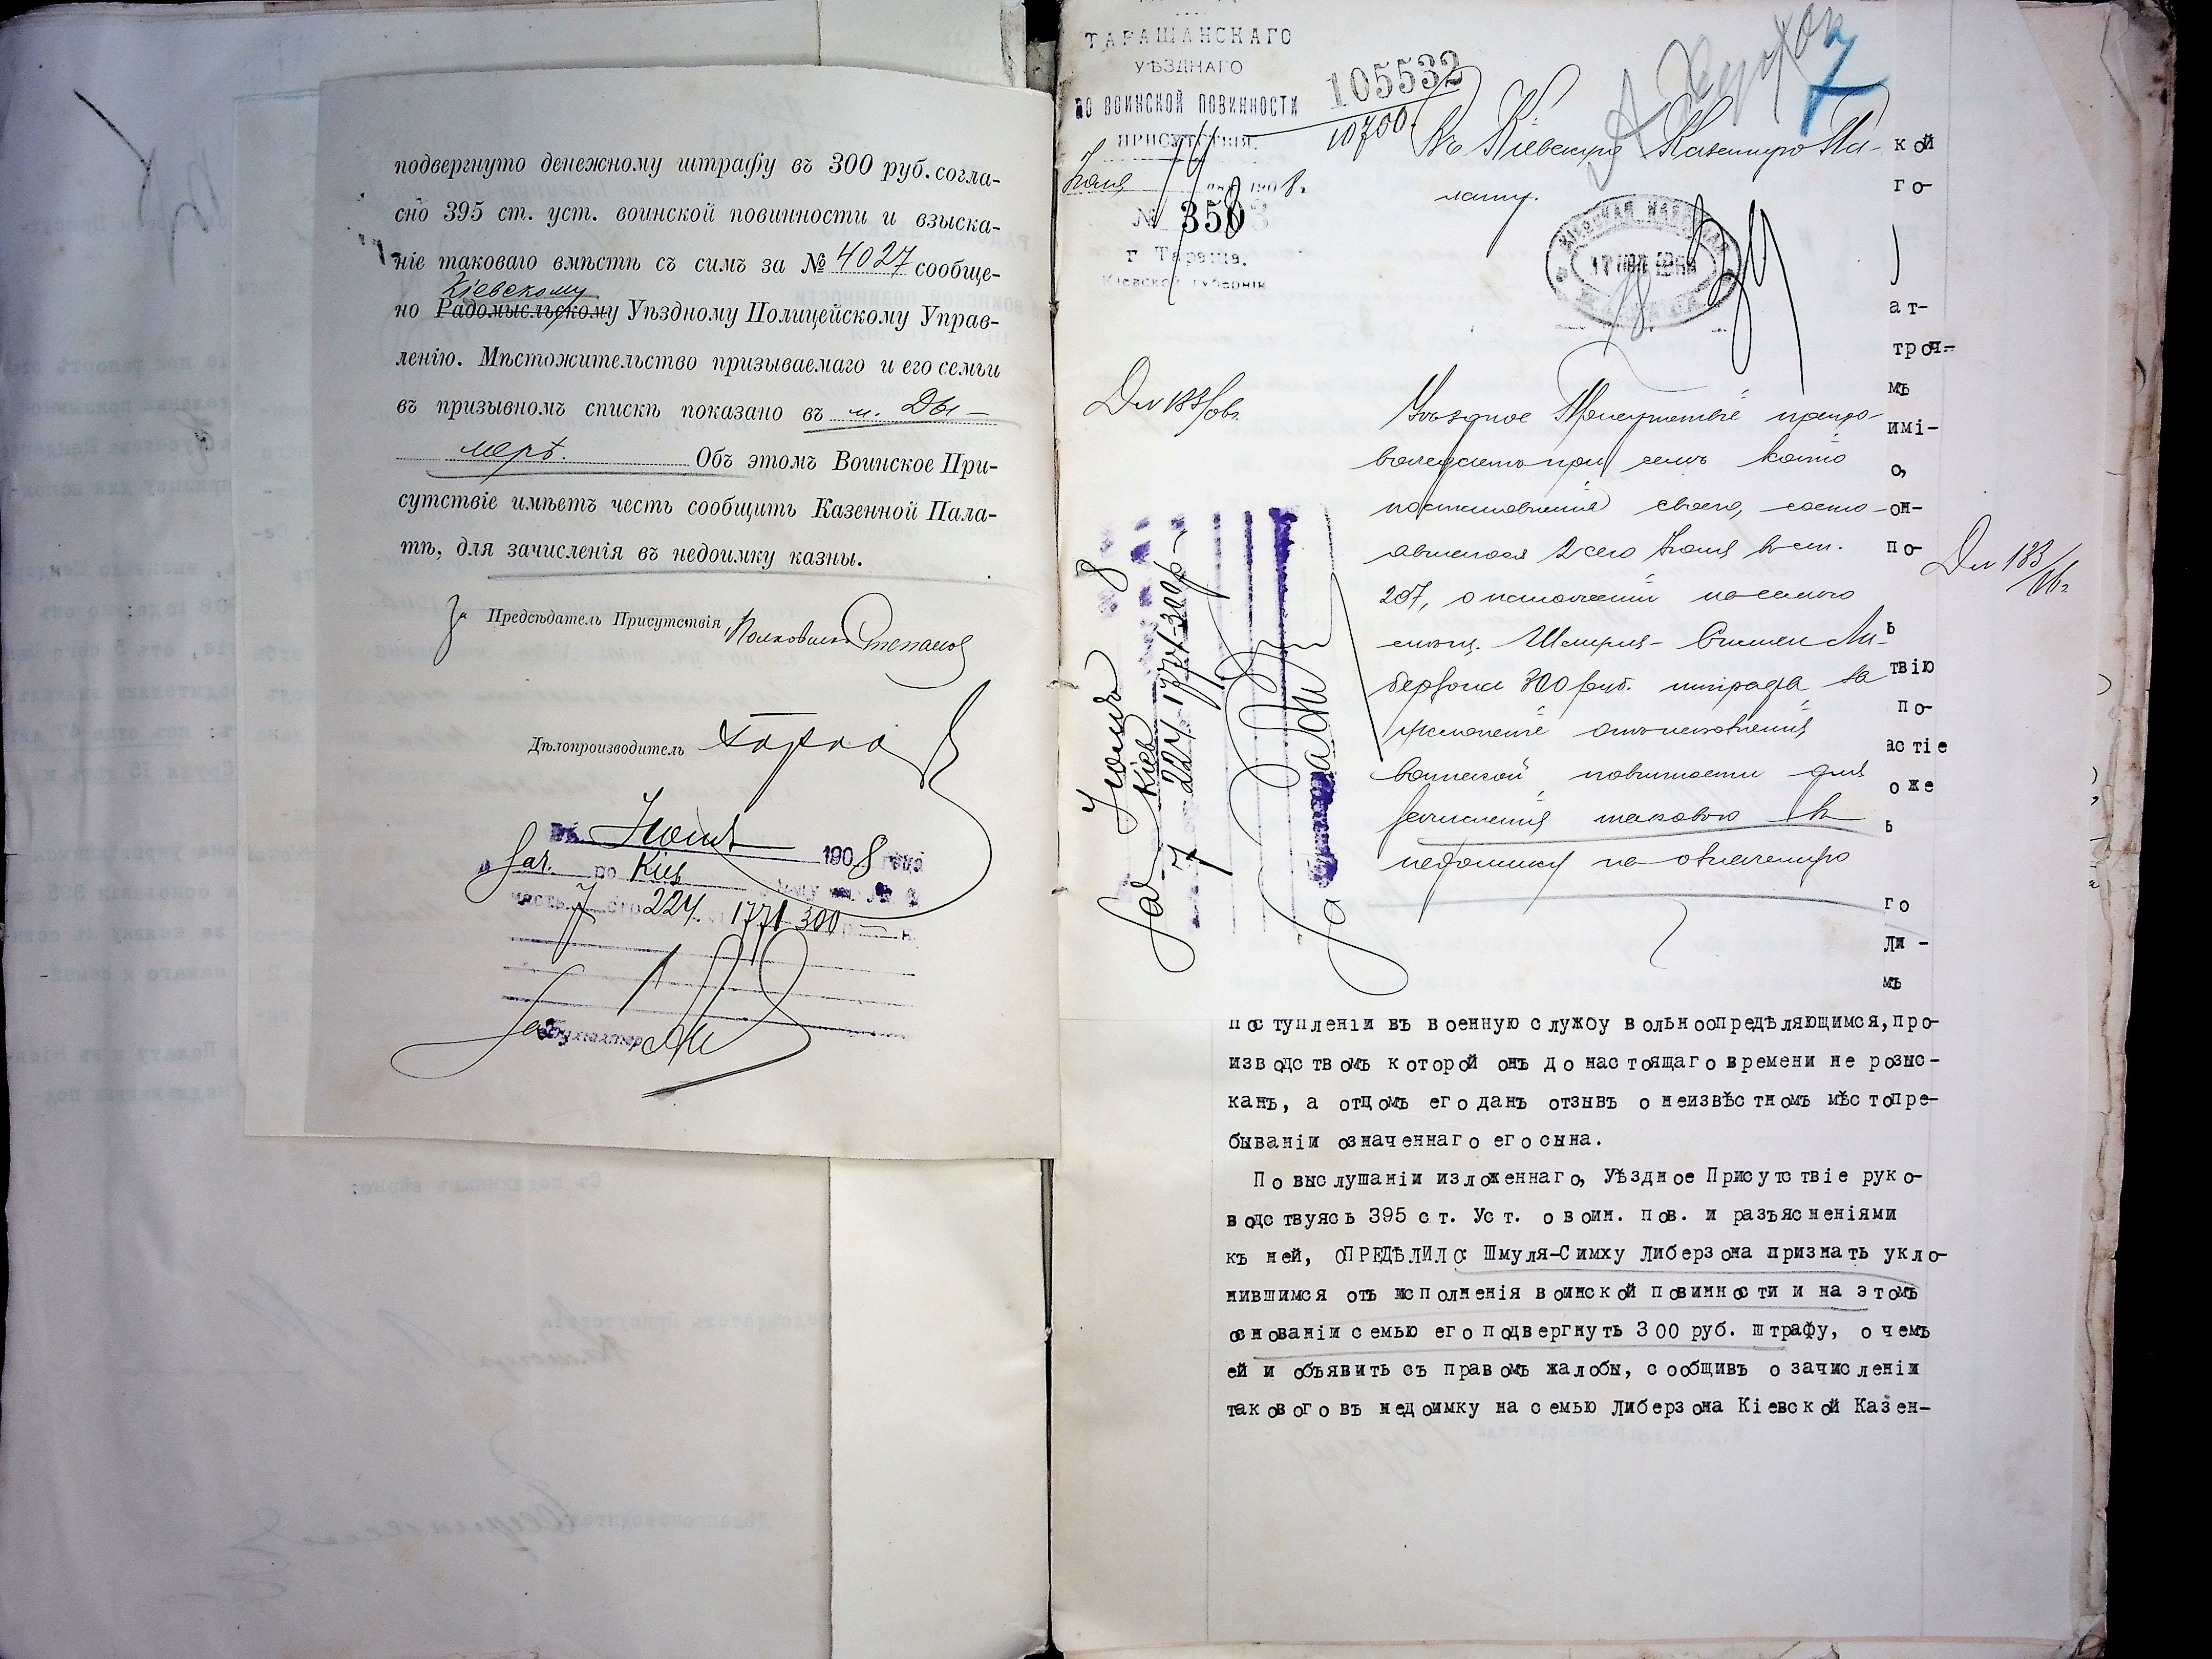 подвергнуто денежному штрафу въ 300 руб. согла-
сно 395 ст. уст. воинской повинности и взыска-
ніе таковаго вмѣстѣ съ симъ за № 4027 сообще-
Кіевскому
но Радомысльскому Уѣздному Полицейскому Управ-
ленію. Мѣстожительство призываемаго и его семьи
въ призывномъ спискѣ показано въ м. Ды-
мерѣ. Объ этомъ Воинское При-
сутствіе имѣетъ честь сообщить Казенной Пала-
тѣ, для зачисленія въ недоимку казны.
За Предсѣдатель Присутствія Полковникъ Степановъ
Дѣлопроизводитель
Въ Іюнѣ 1908 года
Зач. по Кіев
часть 7 стр 224. 1771 300 р
За Бухгалтер
ТАРАЩАНСКАГО
УѢЗДНАГО
ПО ВОИНСКОЙ ПОВИННОСТИ
ПРИСУТСТВІЯ.
Іюня 1908 г.
№ 3503
г. Тараща.
Кіевской губерніи
105532
10700.
7
Въ Кіевскую Казенную Па-
лату.
Дѣл 183/06 г.
Уѣздное Присутствіе препро-
вождаетъ при семъ копію
постановленія своего, состо-
явшагося 2 сего Іюня въ ст.
207, о наложеніи на семью
Шмуля-Симхи Ли-
берзона 300 руб. штрафа за
уклоненіе отъ исполненія
воинской повинности для
зачисленія таковаго въ
недоимку по означенію
Іюнь 8
Зач Кіев
7 224. 1771-300 р
За
кой
го-
ат-
троч-
мъ
имі-
о,
он-
по-
Дѣл 183/06 г.
ь
твію
по-
астіе
оже
ь
го
Ли-
мъ
поступленіи въ военную службу вольноопредѣляющимся, про-
изводствомъ которой онъ до настоящаго времени не розыс-
канъ, а отцомъ его данъ отзывъ о неизвѣстномъ мѣстопре-
бываніи означеннаго его сына.
По выслушаніи изложеннаго, Уѣздное Присутствіе руко-
водствуясь 395 ст. Уст. о воин. пов. и разъясненіями
къ ней, ОПРЕДѢЛИЛО: Шмуля-Симху Либерзона признать укло-
нившимся отъ исполненія воинской повинности и на этомъ
основаніи семью его подвергнуть 300 руб. штрафу, о чемъ
ей и объявить съ правомъ жалобы, сообщивъ о зачисленіи
таковаго въ недоимку на семью Либерзона Кіевской Казен-